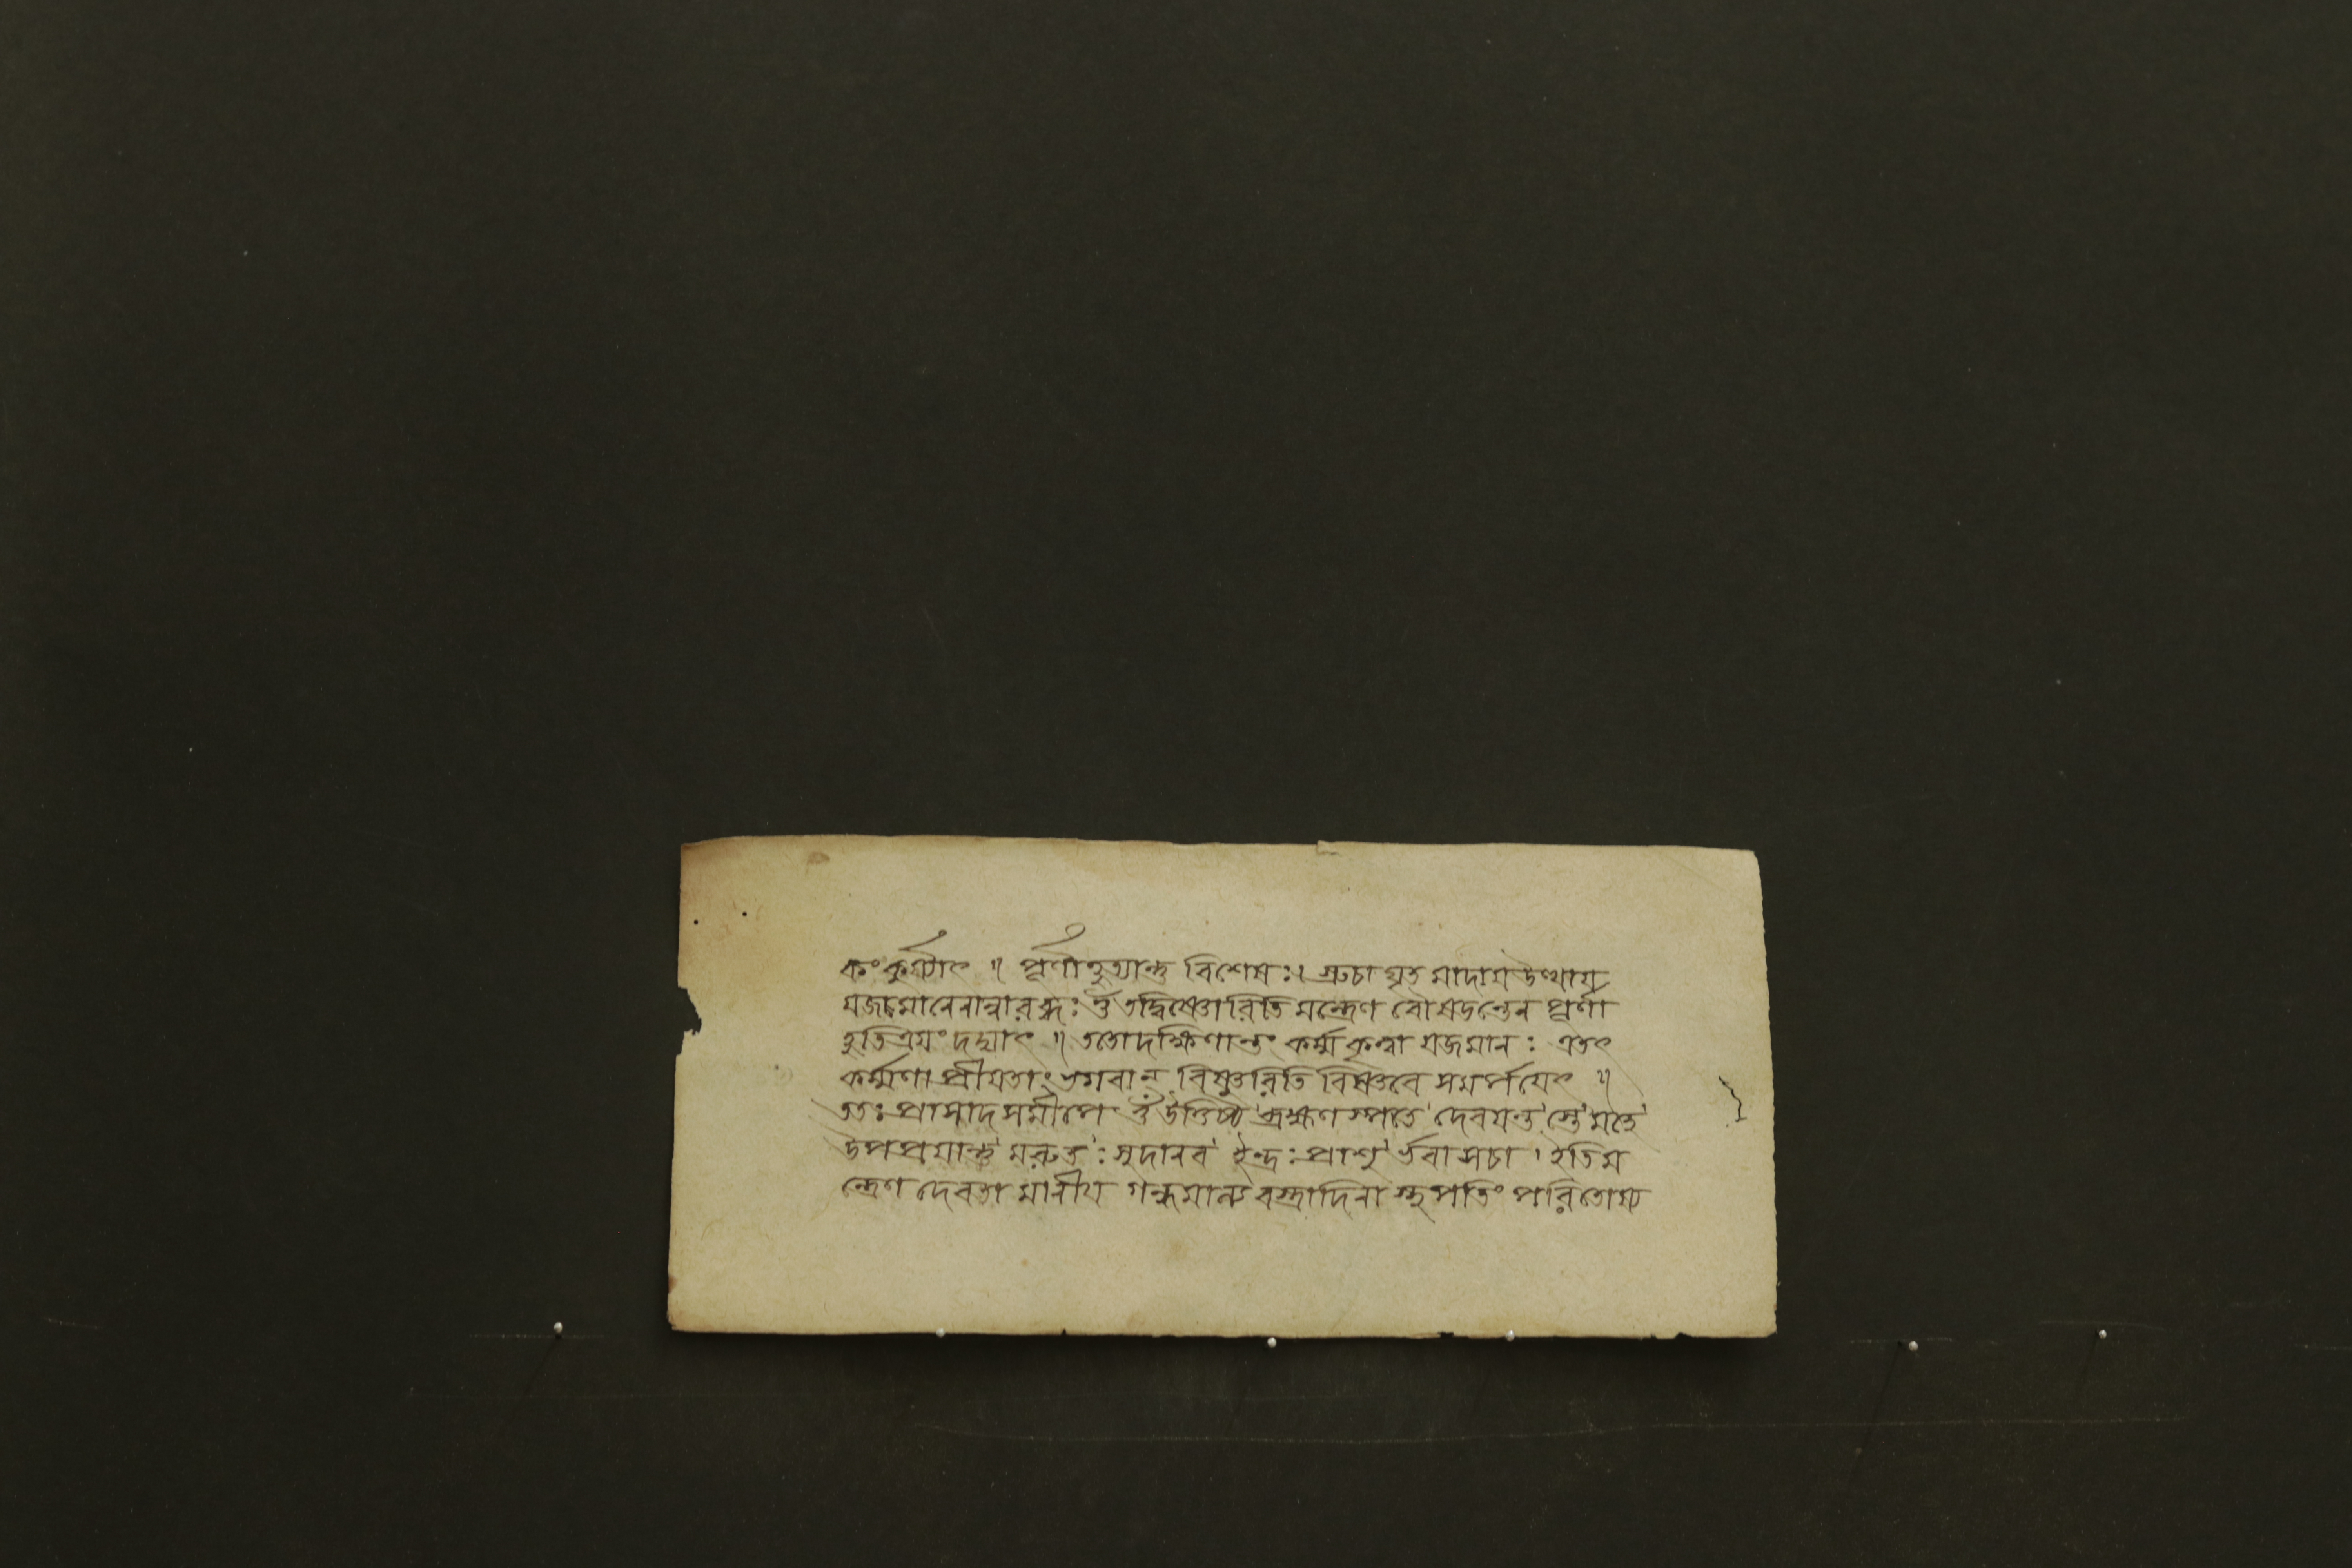 কং কুর্য্যাৎ ॥ পূর্ণাহুত্যান্তু বিশেষঃ। স্রুচা ঘৃত মাদায় উত্থায়
যজমানেনান্বারব্ধঃ ওঁ তদ্বিষ্ণোরিতি মন্ত্রেণ বৌষডন্তেন পূর্ণা
হুতিত্রয়ং দদ্যাৎ ॥ ততোদক্ষিণান্তং কর্ম্ম কৃত্বা যজমানঃ এতৎ
কর্ম্মণা প্রীয়তাং ভগবান্ বিষ্ণুরিতি বিষ্ণবে সমর্পয়েৎ ॥
ততঃ প্রাসাদ সমীপে ওঁ উত্তিষ্ঠ ব্রহ্মণ স্পতে দেবয়ন্ত স্তেমহে
উপপ্রয়ান্তু মরুতঃ সুদানব ইন্দ্রঃ প্রাশু র্ভবা সচা । ইতিম
ন্ত্রেণ দেবতা মানীয় গন্ধমাল্য বস্ত্রাদিনা স্থপতিং পরিতোষ্য